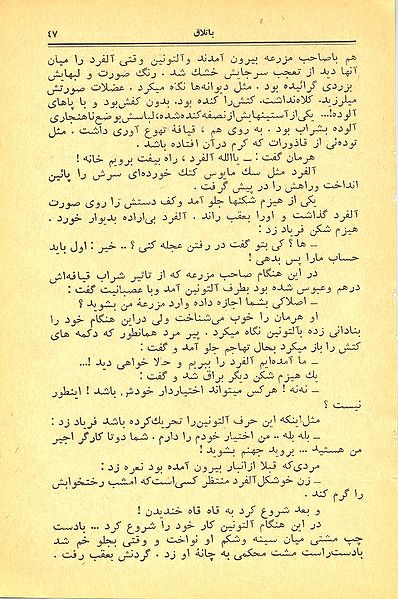 باتلاق ۴۷
هم باصاحب مزرعه بیرون آمدند وآلتونین وقتی آلفرد را میان
آنها دید از تعجب سرجایش خشك شد . رنگ صورت و لبهایش
بزردی گرائیده بود . مثل دیوانه‌ها نگاه میکرد . عضلات صورتش
میلرزید. کلاه‌نداشت. کتش‌را کنده بود. بدون کفش‌بود و با پاهای
آلوده!... یکی‌از آستینهایش‌از نصفه‌کنده‌شده، لباسش‌بوضع‌ناهنجاری
آلوده بشراب بود . به روی هم ، قیافهٔ تهوع آوری داشت . مثل
توده‌ئی از قاذورات که کرم درآن افتاده باشد .
هرمان گفت : ـ یاالله آلفرد ، راه بیفت برویم خانه !
آلفرد مثل سك مایوس کتك خورده‌ای سرش را پائین
انداخت وراهش را در پیش گرفت .
یکی از هیزم شکنها جلو آمد وکف دستش را روی صورت
آلفرد گذاشت و اورا بعقب راند . آلفرد بی‌اراده بدیوار خورد .
هیزم شکن فریاد زد :
ـ ها ؟ کی بتو گفت در رفتن عجله کنی ؟ .. خیر : اول باید
حساب مارا پس بدهی !
در این هنگام صاحب مزرعه که از تاثیر شراب قیافه‌اش
درهم وعبوس شده بود بطرف آلتونین آمد وبا عصبانیت گفت :
ـ اصلاکی بشما اجازه داده وارد مزرعهٔ من بشوید ؟
او هرمان را خوب می‌شناخت ولی دراین هنگام خود را
بنادانی زده بآلتونین نگاه میکرد . پیر مرد همانطور که دکمه های
کتش را باز میکرد بحال تهاجم جلو آمد و گفت :
ـ ما آمده‌ایم آلفرد را ببریم و حالا خواهی دید !...
یك هیزم شکن دیگر براق شد و گفت :
ـ نه‌نه ! هرکس میتواند اختیاردار خودش باشد ! اینطور
نیست ؟
مثل‌اینکه این حرف آلتونین‌را تحریك‌کرده باشد فریاد زد :
ـ بله بله .. من اختیار خودم را دارم . شما دوتا کارگر اجیر
من هستید ... بروید جهنم بشوید !
مردی‌که قبلا ازانبار بیرون آمده بود نعره زد :
ـ زن خوشکل‌آلفرد منتظر کسی‌است‌که امشب رختخوابش
را گرم کند .
و بعد شروع کرد به قاه قاه خندیدن !
در این هنگام آلتونین کار خود را شروع کرد ... بادست
چپ مشتی میان سینه وشکم او نواخت و وقتی بجلو خم شد
بادست‌راست مشت محکمی به چانهٔ او زد . گردنش بعقب رفت .